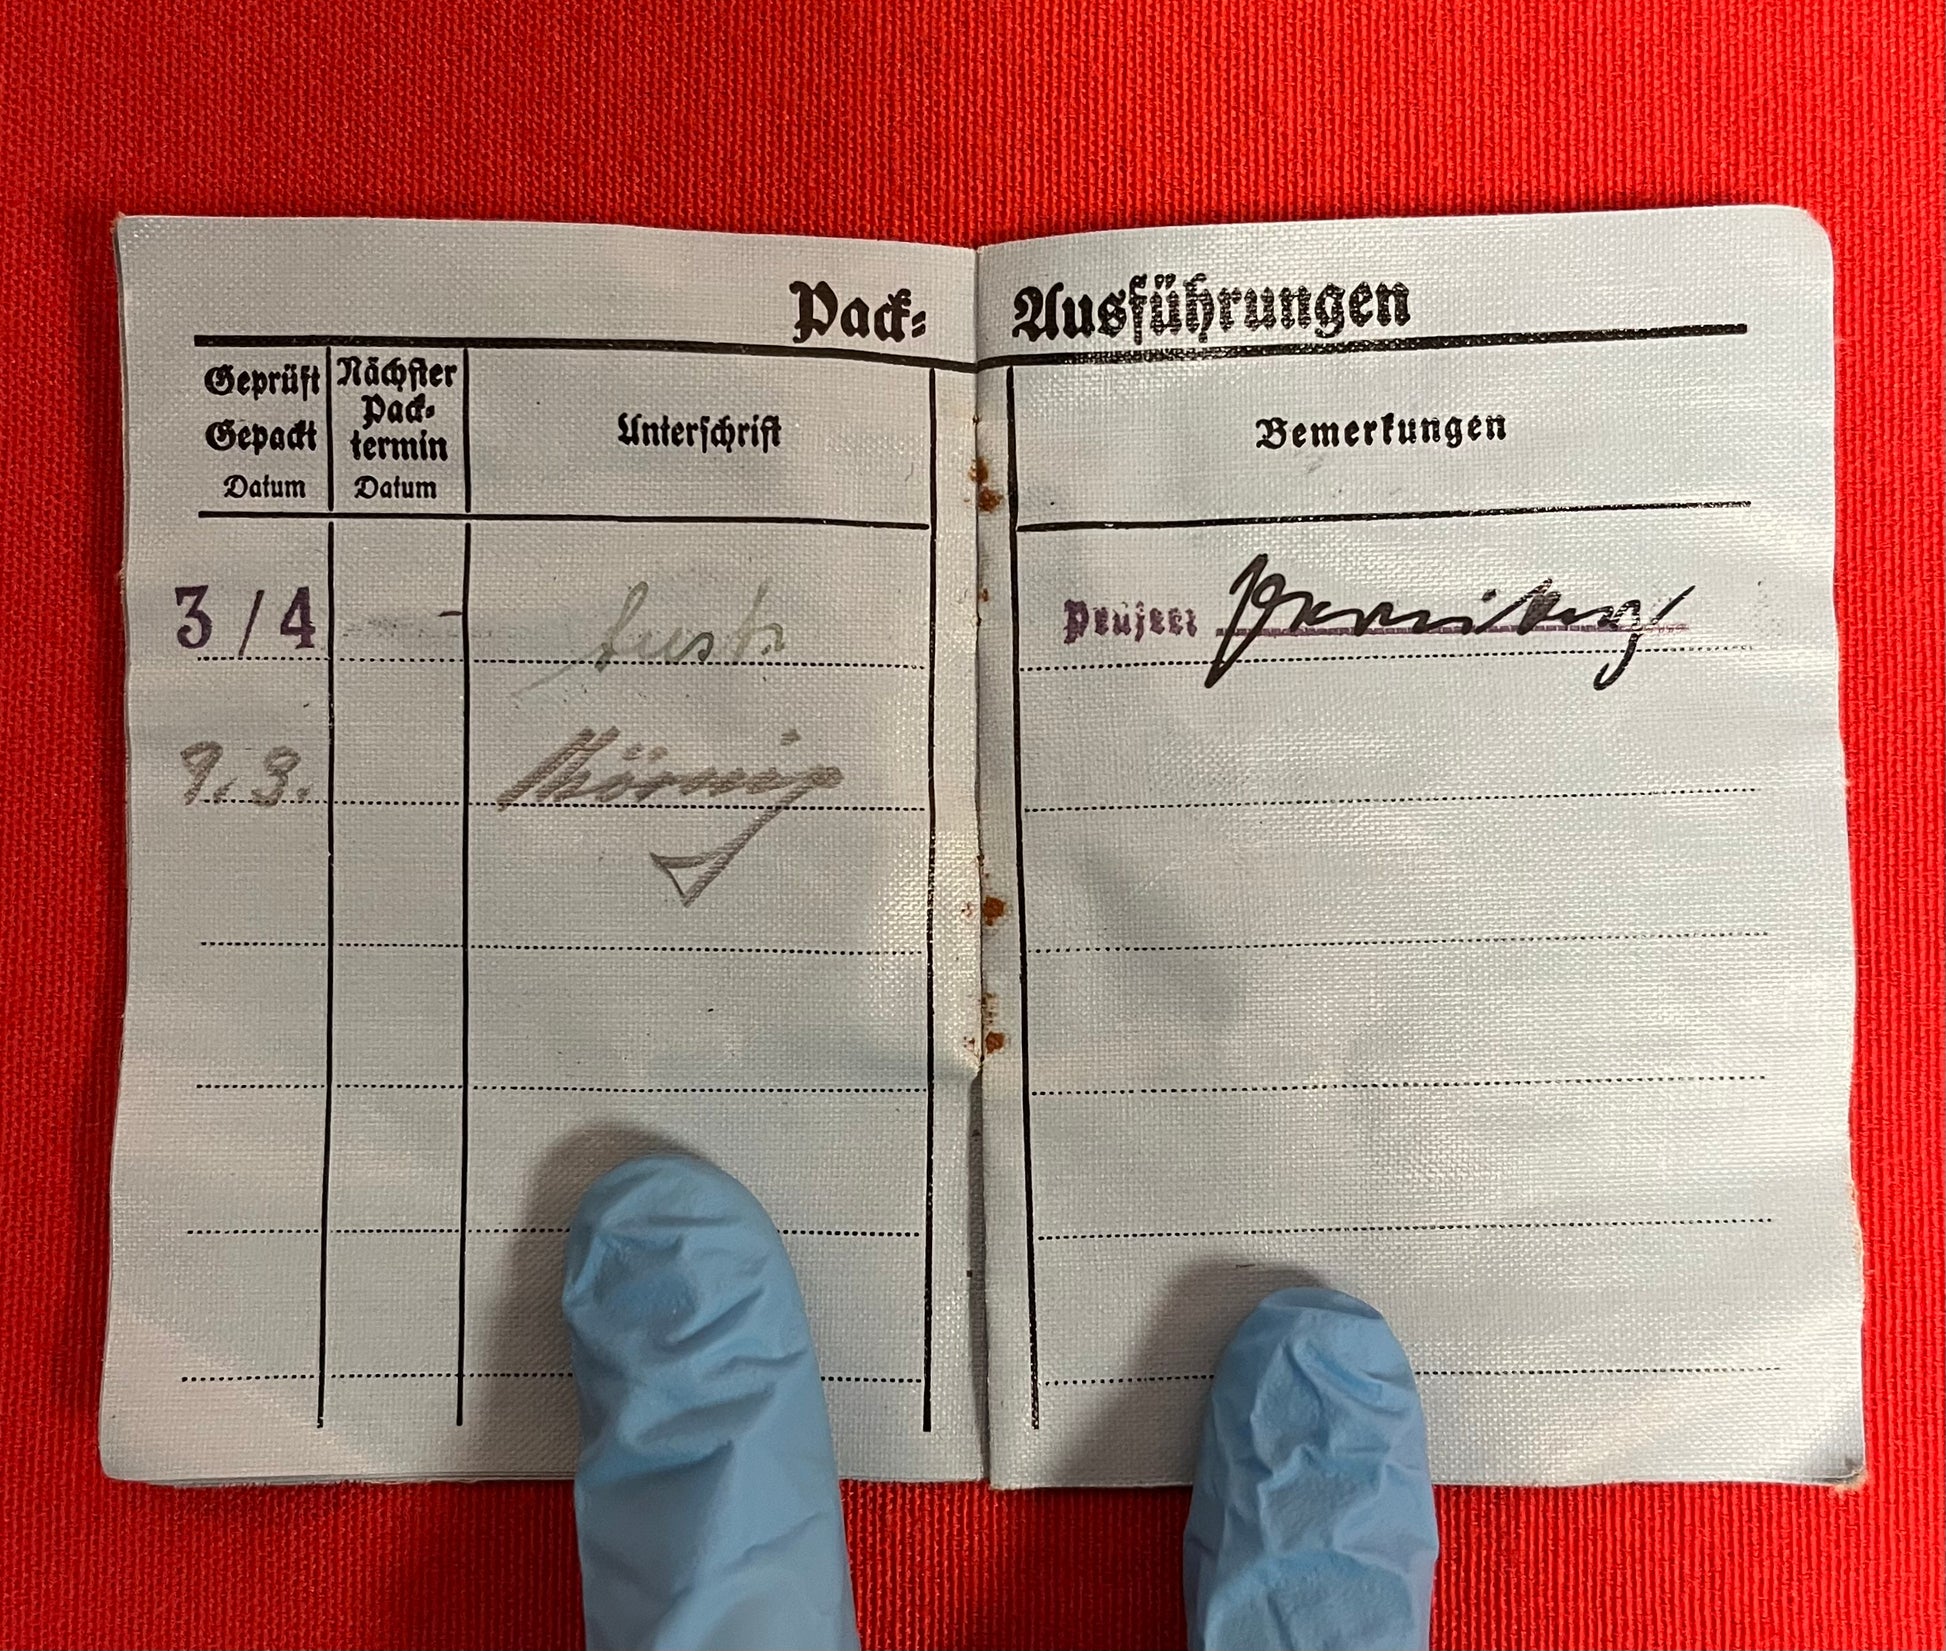 Pack- Ausführungen
Geprüft
Gepackt
Datum
Nächster
Pack-
termin
Datum
Unterschrift
Bemerkungen
3/4
Prüfer:
9.3.